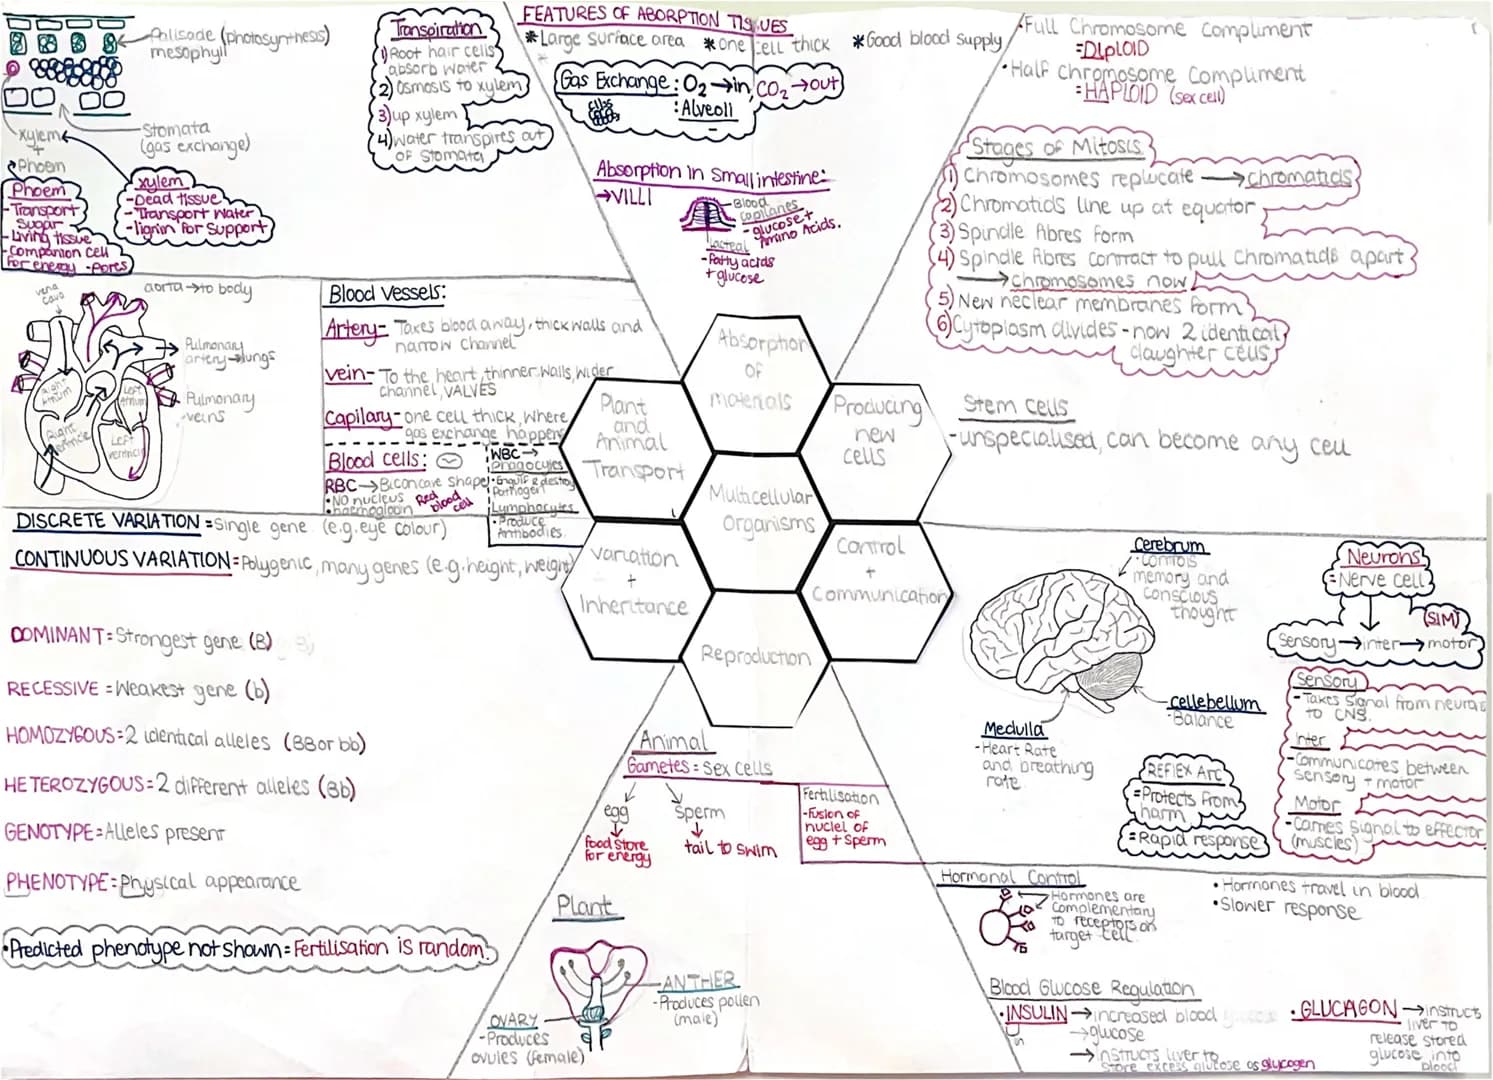 Palisade (photosynthesis)
mesophyll
Stomata
(gas exchange)
xylem
+
Phoem
Phoem
-Transport
Sugar
-Living tissue
-Companion cell
for energy -Pores
xylem
-Dead tissue
-Transport water
-lignin for support
Transpiration
1) Root hair cells
absorb water
2) Osmosis to xylem
3) up xylem
4) water transpires out
of stomata
FEATURES OF ABORPTION TISUES
*Large surface area *one cell thick *Good blood supply
Gas Exchange: O2→in, CO2→out
:Alveoli
Absorption in Small intestine:
→VILLI
Blood
capilaries
-glucose+
Amino Acids.
lacteal
-Fatty acids
+glucose
•Full Chromosome Compliment
=DIPLOID
•Half Chromosome Compliment
=HAPLOID (sex cell)
Stages of Mitosis
1) Chromosomes replucate →chromatids
2) Chromatids line up at equator
3) Spindle fibres form
4) Spindle fibres contract to pull chromatids apart
→chromosomes now
5) New neclear membranes form
6) Cytoplasm divides - now 2 identical
daughter cells
Stem cells
-unspecialised, can become any cell
vena
cava
aorta→to body
Pulmonary
artery→lungs
Pulmonary
veins
Right
Atrium
Left
Atrium
Right
ventricle
Left
ventricle
Blood Vessels:
Artery- Takes blood away, thick walls and
narrow channel
vein- To the heart, thinner walls, wider
channel, VALVES
Capilary- one cell thick, where
gas exchange happens
Blood cells:
RBC→Biconcave shape
•No nucleus
•haemogloain
Red
blood
cell
WBC→
Phagocytes
•Engulf & destroy
Pathogen
Lymphocytes
•Produce
Antibodies.
Absorption
OF
materials
Plant
and
Animal
Transport
Producing
new
cells
Multicellular
Organisms
Variation
+
Inheritance
Control
+
Communication
Reproduction
DISCRETE VARIATION = Single gene (e.g. eye colour)
CONTINUOUS VARIATION = Polygenic, many genes (e.g. height, weight)
DOMINANT = Strongest gene (B)
RECESSIVE = Weakest gene (b)
HOMOZYGOUS = 2 identical alleles (BB or bb)
HETEROZYGOUS = 2 different alleles (Bb)
GENOTYPE = Alleles present
PHENOTYPE = Physical appearance
•Predicted phenotype not shown = Fertilisation is random.
Animal
Gametes = Sex cells
egg
food store
for energy
Sperm
tail to swim
Fertilisation
-Fusion of
nuclei of
egg + sperm
Plant
ANTHER
-Produces pollen
(male)
OVARY
-Produces
ovules (female)
Cerebrum
•Controls
memory and
conscious
thought
cellebellum
•Balance
Medulla
-Heart Rate
and breathing
rate
REFLEX Arc
=Protects from
harm
=Rapid response
Neurons
=Nerve cell
(SIM)
Sensory→inter→motor
Sensory
-Takes signal from neurons
to CNS.
Inter
-Communicates between
Sensory + motor
Motor
-Carries Signal to effector
(muscles)
Hormonal Control
Hormones are
complementary
to receptors on
target cell.
•Hormones travel in blood
•Slower response
Blood Glucose Regulation
•INSULIN→increased blood
→glucose
→instructs liver to
store excess glucose as glycogen
•GLUCAGON→instructs
liver to
release stored
glucose into
blood